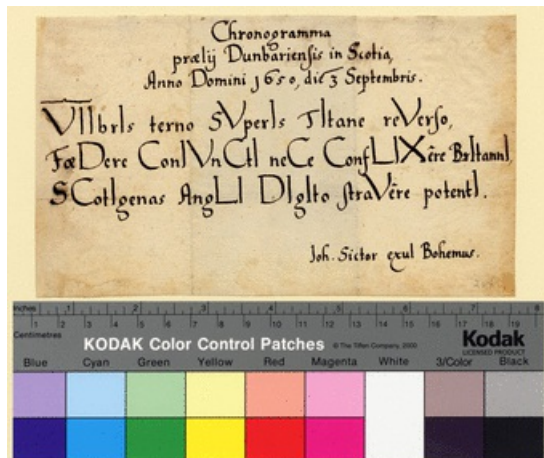 Chronogramma
prælij Dunbarienſis in Scotia,
Anno Domini 1650, die 3 Septembris.
VIIbrIs terno SVperIs TItane reVerſo,
FœDere ConIVnCtI neCe ConfLIXêre BrItannI,
SCotIgenas AngLI DIgIto ſtraVêre potentI.
Joh. Sictor exul Bohemus.
Inches 1 2 3 4 5 6 7 8
Centimetres 1 2 3 4 5 6 7 8 9 10 11 12 13 14 15 16 17 18 19
KODAK Color Control Patches © The Tiffen Company, 2000 Kodak
LICENSED PRODUCT
Blue Cyan Green Yellow Red Magenta White 3/Color Black